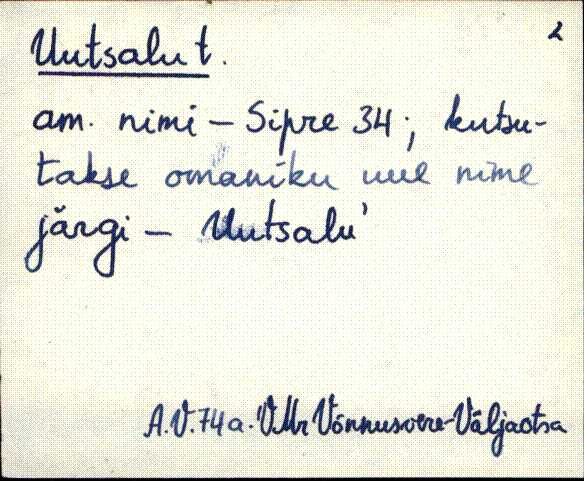 2
Uutsalu t.
am. nimi – Sipre 34; kutsu-
takse omaniku uue nime
järgi – Uutsalu'
A.V. 74 a. VMr Võnnusvere-Väljaotsa